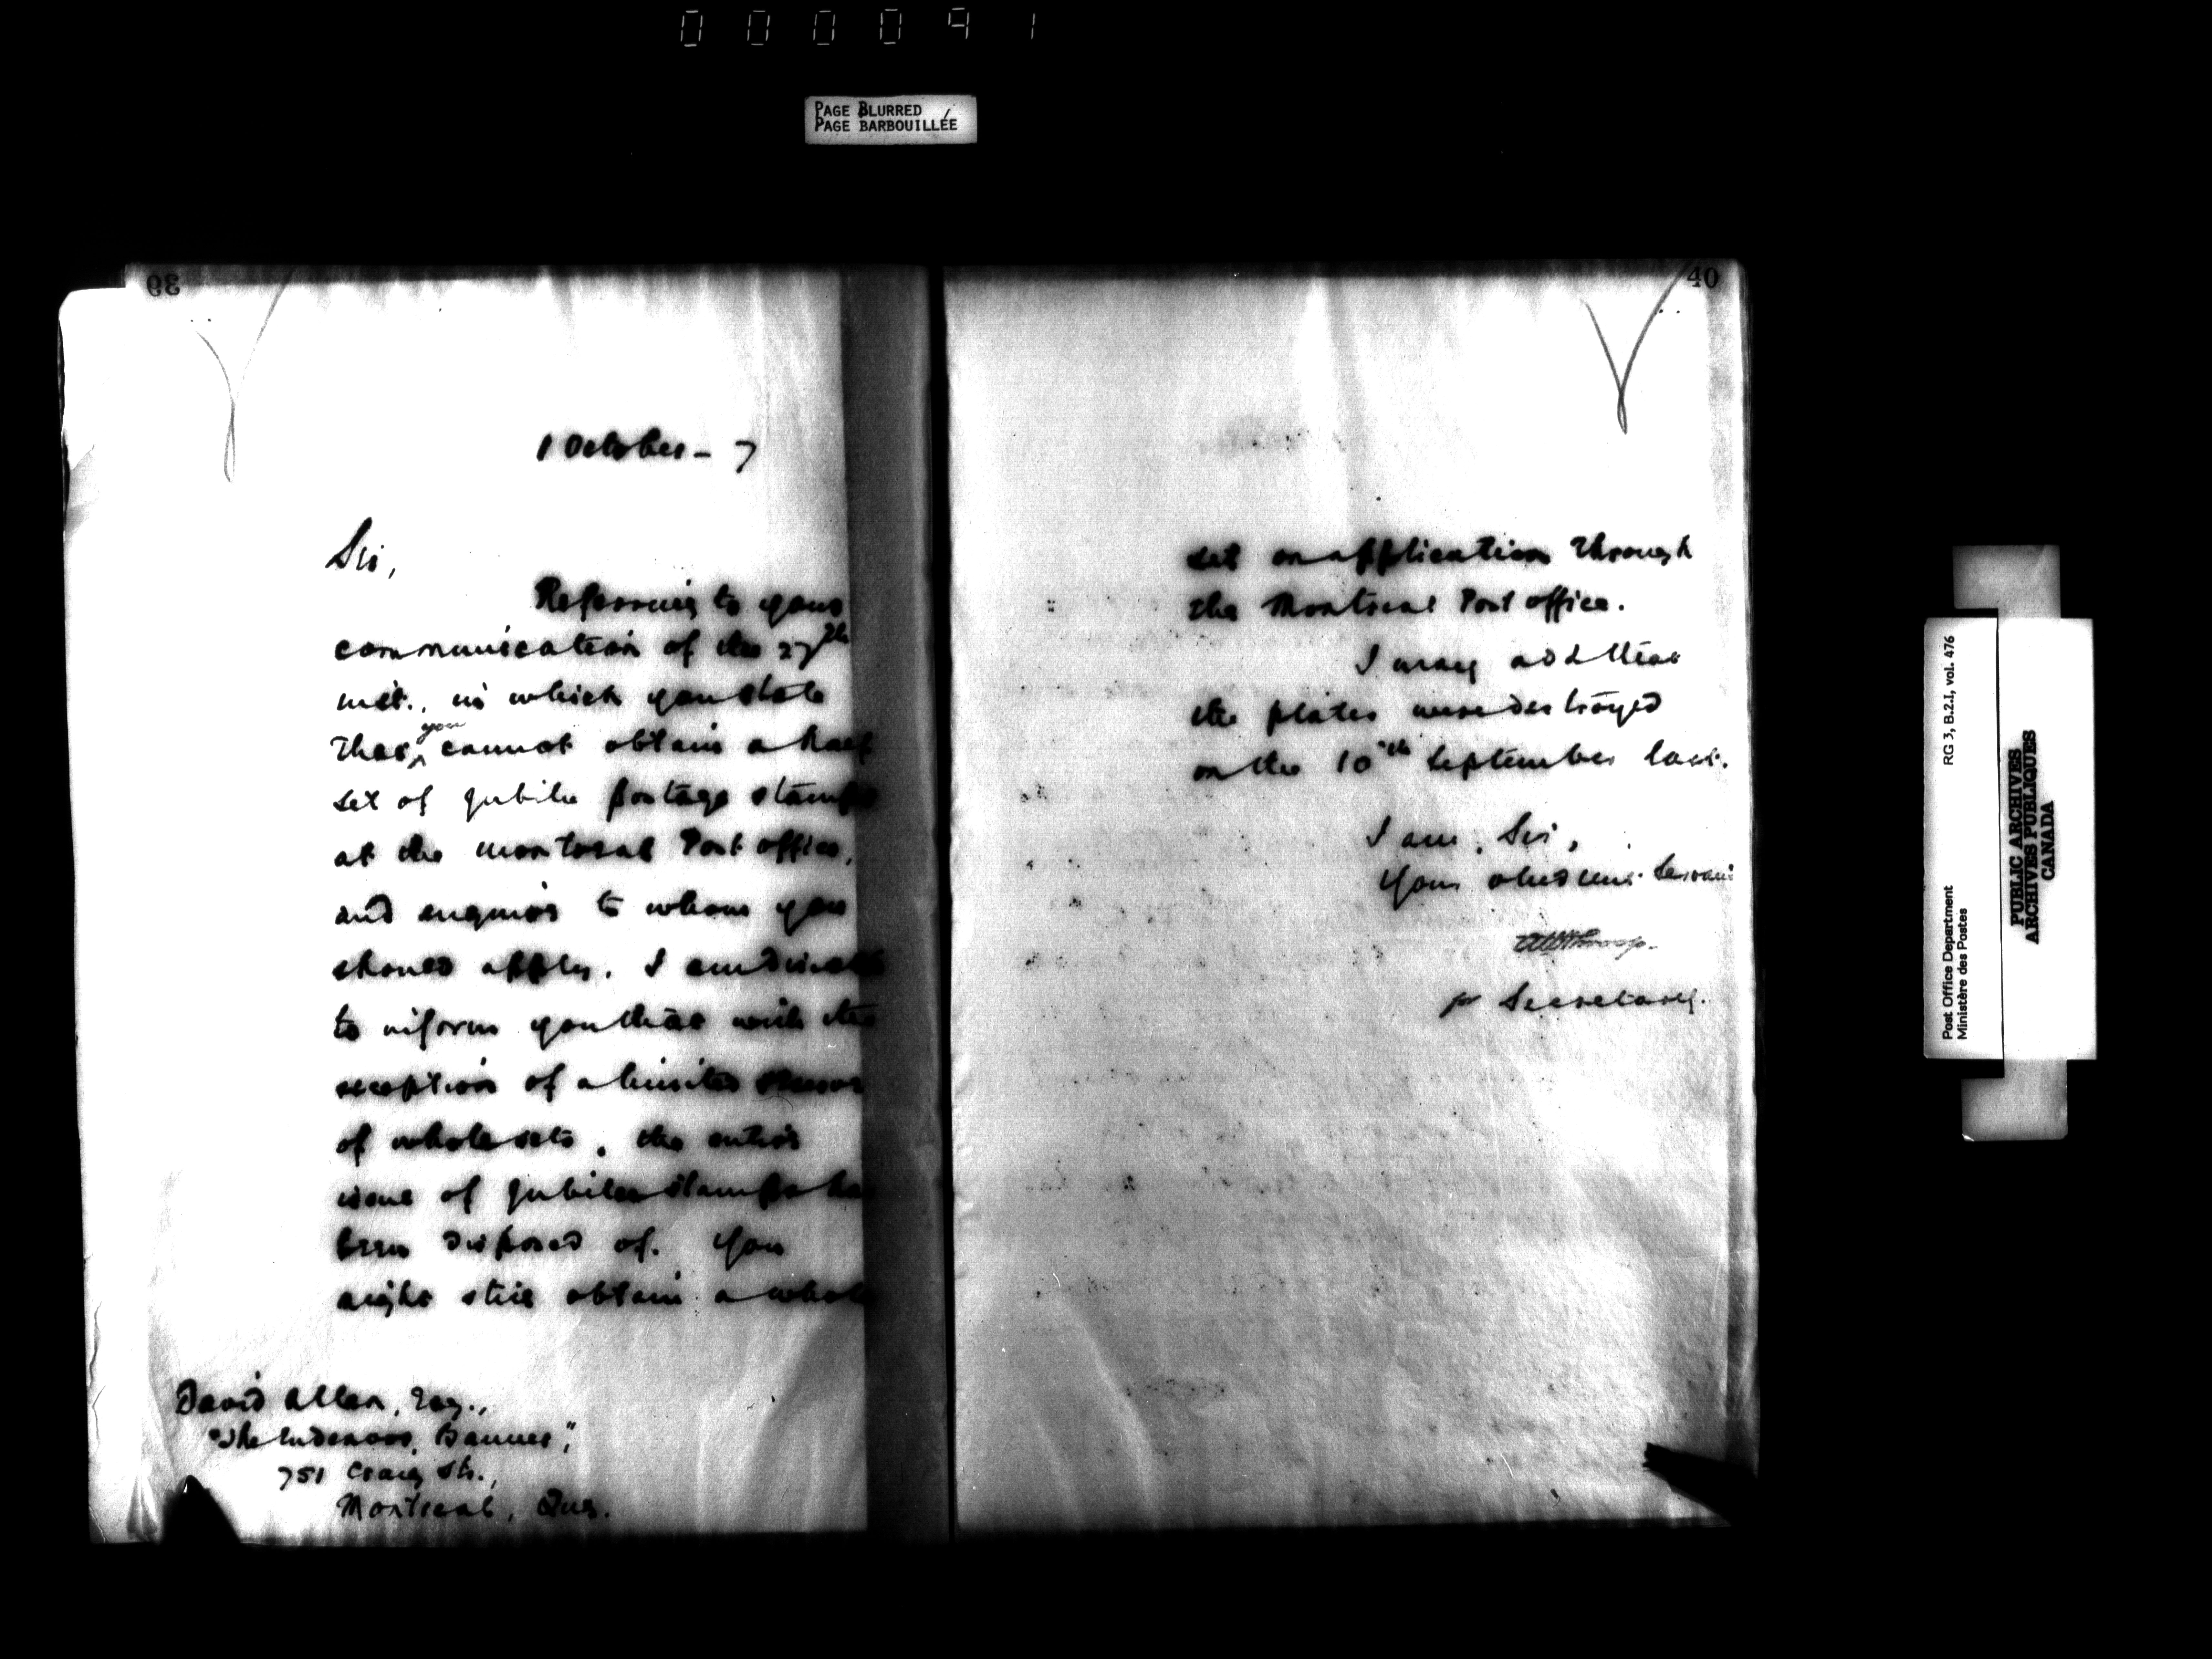 000091
PAGE BLURRED
PAGE BARBOUILLÉE
39
1 October - 7
Sir,
Referring to your
communication of the 27th
inst., in which you state
that you cannot obtain a half
set of jubilee postage stamps
at the Montreal Post office,
and enquire to whom you
should apply, I am directed
to inform you that with the
exception of a limited number
of whole sets, the entire
issue of jubilee stamps has
been disposed of. You
might still obtain a whole
David Allan, Esq.,
"The Endeavor Banner,"
751 Craig St.,
Montreal, Que.
40
set on application through
the Montreal Post office.
I may add that
the plates were destroyed
on the 10th September last.
I am, Sir,
Your obedient Servant
for Secretary.
Post Office Department
Ministère des Postes
RG 3, B.2.I, vol. 476
PUBLIC ARCHIVES
ARCHIVES PUBLIQUES
CANADA